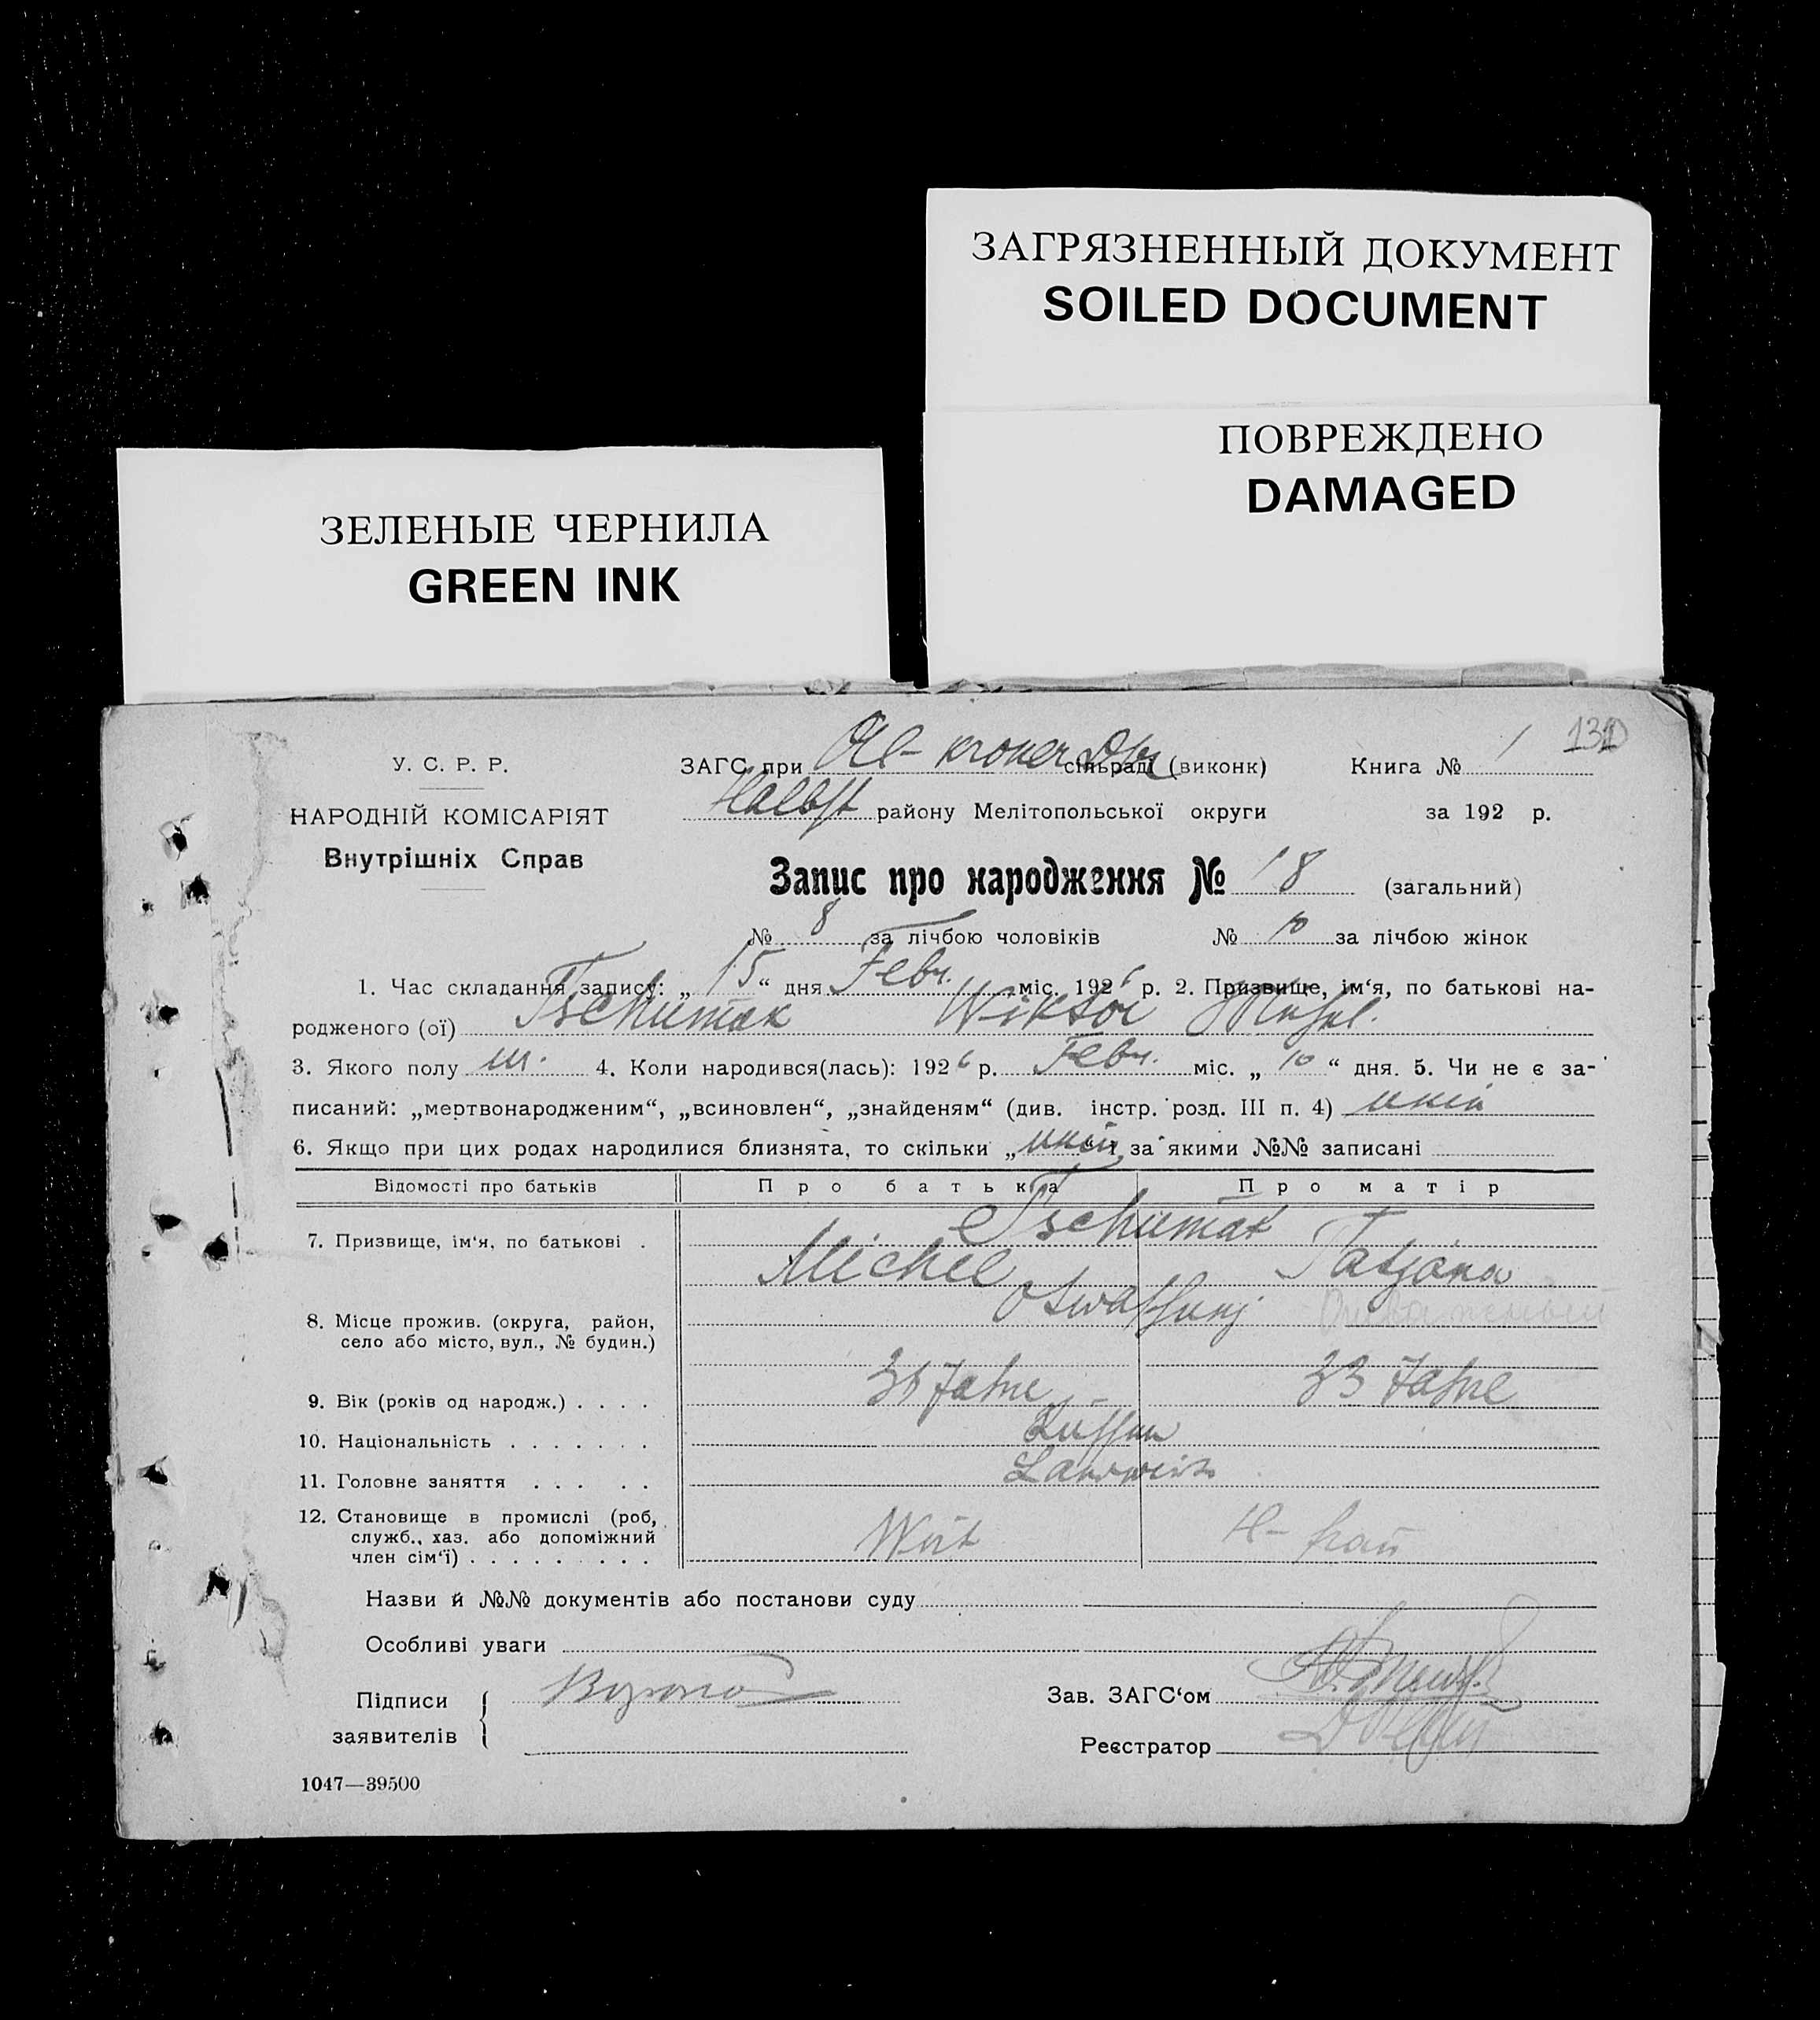 ЗАГРЯЗНЕННЫЙ ДОКУМЕНТ
SOILED DOCUMENT
ПОВРЕЖДЕНО
DAMAGED
ЗЕЛЕНЫЕ ЧЕРНИЛА
GREEN INK
131
У. С. Р. Р.
НАРОДНІЙ КОМІСАРІЯТ
Внутрішніх Справ
ЗАГС при сільраді (виконк) Книга № 1
Halbst району Мелітопольської округи за 192 р.
Запис про народження № 18 (загальний)
№ 8 за лічбою чоловіків № 10 за лічбою жінок
1. Час складання запису: „ 15 “ дня Febr. міс. 1926 р. 2. Призвище, ім‘я, по батькові на-
родженого (ої) Tschumak Wiktor
3. Якого полу m. 4. Коли народився(лась): 1926 р. Febr. міс. „ 10 “ дня. 5. Чи не є за-
писаний: „мертвонародженим“, „всиновлен“, „знайденям“ (див. інстр. розд. III п. 4)
6. Якщо при цих родах народилися близнята, то скільки „ за якими №№ записані
Відомості про батьків Про батька Про матір
7. Призвище, ім‘я, по батькові . Tschumak
Michel Tatjana
8. Місце прожив. (округа, район,
село або місто, вул., № будин.)
9. Вік (років од народж.) . . . . 36 Jahre 33 Jahre
10. Національність . . . . . . . Russen
11. Головне заняття . . . . . Landwirte
12. Становище в промислі (роб,
служб., хаз. або допоміжний
член сім‘ї) . . . . . . . . . Wirt H-frau
Назви й №№ документів або постанови суду
Особливі уваги
Підписи
заявителів
Зав. ЗАГС‘ом
Реєстратор
1047—39500